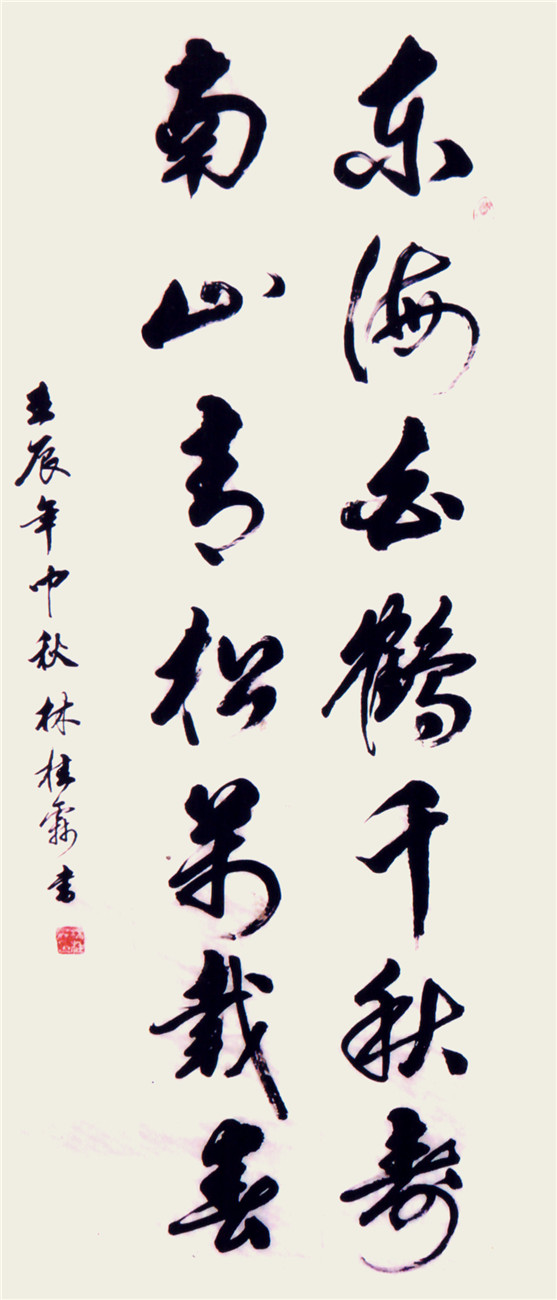 东海白鹤千秋寿
南山青松万载春
壬辰年中秋林桂霖书